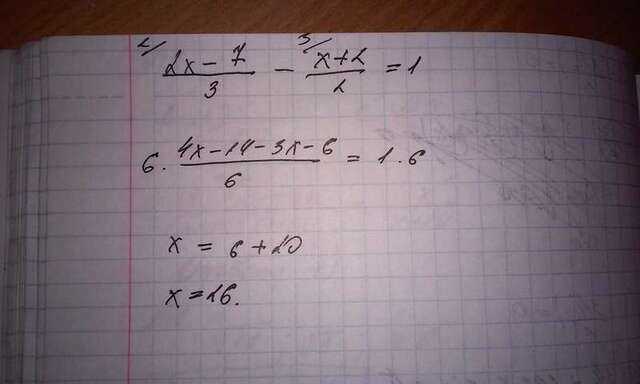 2/ 3/
(2x - 7)/3 - (x+2)/2 = 1
6 · (4x-14-3x-6)/6 = 1 · 6
x = 6 + 20
x = 26.